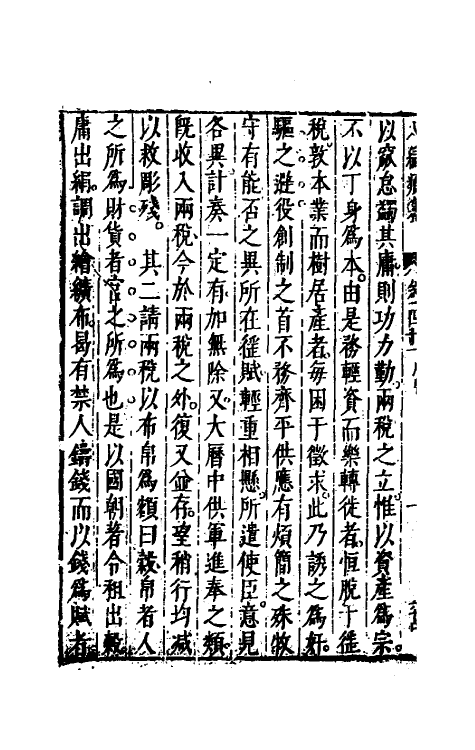 以窳怠蠲其庸則功力勤兩稅之立惟以資產爲宗
不以丁身爲本由是務輕資而樂轉徙者恒脫于徭
稅敦本業而樹居產者每困于徵求此乃誘之爲奸
驅之避役創制之首不務齊平供應有煩簡之殊牧
守有能否之異所在徭賦輕重相懸所遣使臣意見
各異計奏一定有加無除又大曆中供軍進奉之類
旣收入兩稅今於兩稅之外復又並存望稍行均减
以救彫殘。其二請兩稅以布帛爲額曰穀帛者人
之所爲財貨者官之所爲也是以國朝著令租出穀
庸出絹調出繒纊布曷有禁人鑄錢而以錢爲賦者